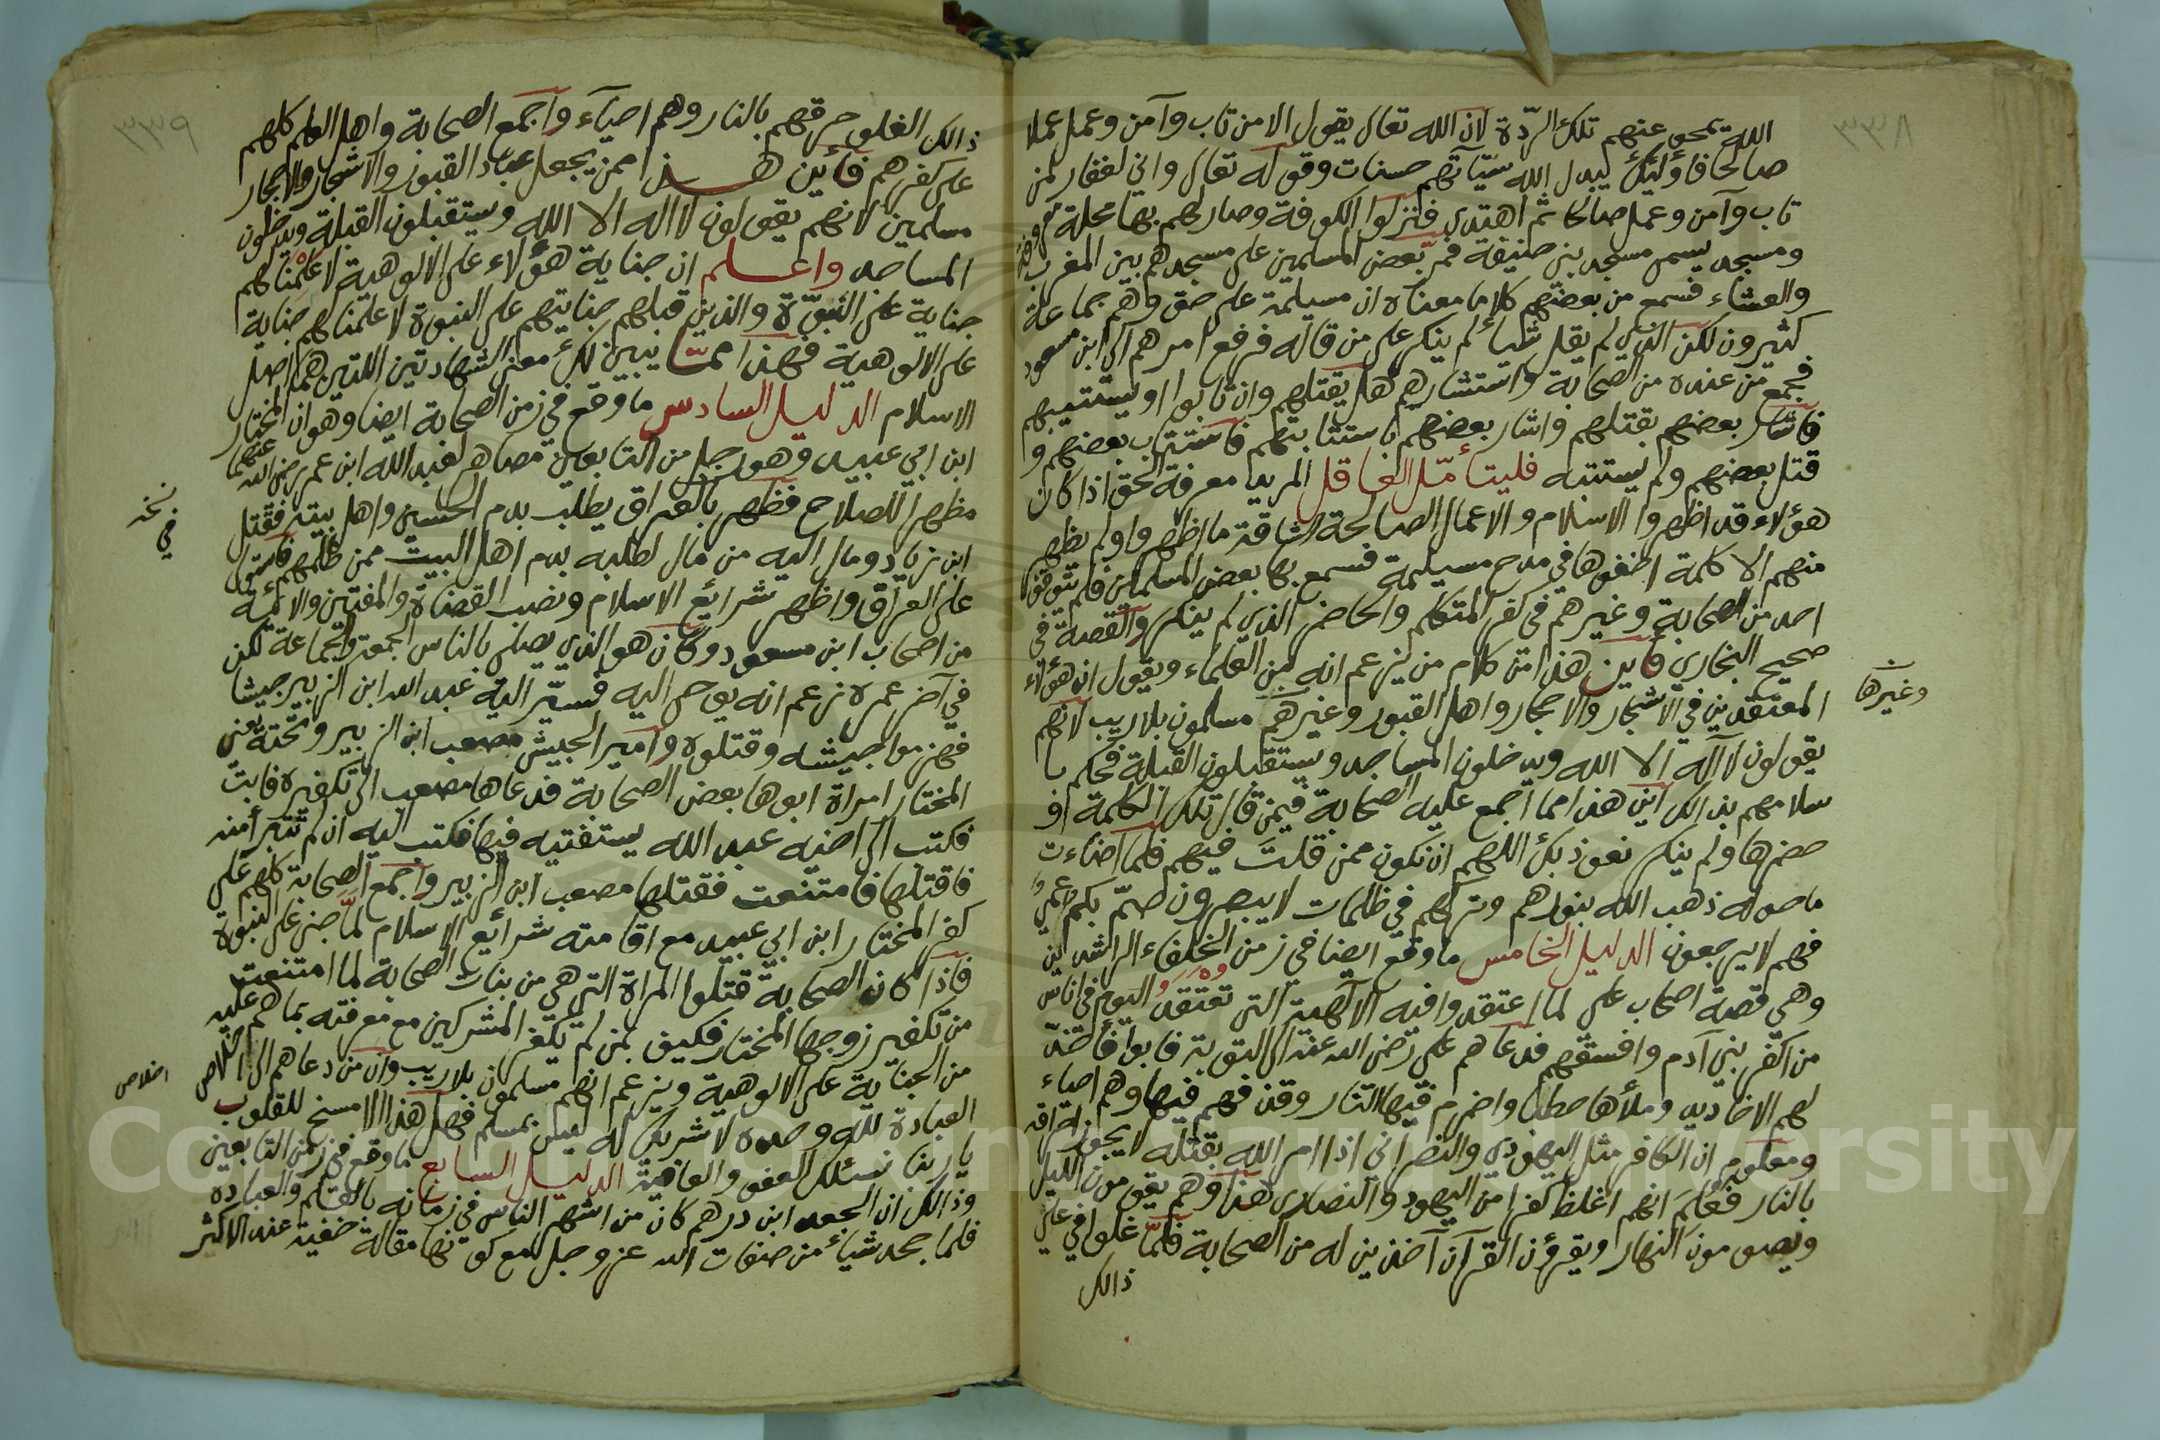 ٣٣٨
الله يمحو عنهم تلك الرّدة لان الله تعالى يقول الا من تاب وآمن وعمل عملا
صالحا فأولئك يبدل الله سيّآتهم حسنات وقوله تعالى واني لغفار لمن
تاب وآمن وعمل صالحا ثم اهتدى فنزلوا الكوفة وصار لهم بها محلة معروفة
ومسجد يسمى مسجد بني حنيفة فمرّ بعض المسلمين على مسجدهم بين المغرب
والعشاء فسمع من بعضهم كلاما معناه ان مسيلمة على حق وهم جماعة
كثيرون لكن الذي لم يقل شيأ لم ينكر على من قاله فرفع امرهم الى ابن مسعود
فجمع من عنده من الصحابة واستشارهم هل يقتلهم وان تابوا او يستتيبهم
فاشار بعضهم بقتلهم واشار بعضهم باستتابتهم فاستتاب بعضهم و
قتل بعضهم ولم يستتبه فليتأمّل العاقل المريد معرفة الحق اذا كان
هؤلاء قد اظهروا الاسلام والاعمال الصالحة الشاقة ما اظهروا ولم يظهر
منهم الا كلمة اخفوها في مدح مسيلمة فسمع بها بعض المسلمين فلم يتوقف
احد من الصحابة وغيرهم في كفر المتكلم والحاضر الذي لم ينكر والقصة في
صحيح البخاري فاين هذا من كلام من يزعم انه من العلماء ويقول ان هؤلاء
المعتقدين في الاشجار والاحجار واهل القبور وغيرهم مسلمون بلا ريب لانهم
وغيرها
يقولون لا آله الا الله ويدخلون المساجد ويستقبلون القبلة فحكم با
سلامهم بذالك اين هذا مما اجمع عليه الصحابة فيمن قال تلك الكلمة او
حضرها ولم ينكر نعوذ بك اللهم ان نكون ممن قلت فيهم فلما اضاءت
ما حوله ذهب الله بنورهم وتركهم في ظلمات لا يبصرون صمّ بكم عمي
فهم لا يرجعون الدليل الخامس ما وقع ايضا في زمن الخلفاء الراشدين
وهي قصة اصحاب علي لما اعتقدوا فيه الآلهية التي تعتقد اليوم في اناس
من اكفر بني آدم وافسقهم فدعاهم علي رضي الله عنه الى التوبة فابوا فأخدّ
لهم الاخاديد وملأها حطبا واضرم فيها النار وقذفهم فيها وهم احياء
ومعلوم ان الكافر مثل اليهودي والنصراني اذا امر الله بقتله لا يجوز احراقه
بالنار فعُلِمَ انهم اغلظ كفرا من اليهود والنصارى هذا وهم يقومون الليل
ويصومون النهار ويقرؤن القرآن آخذين له من الصحابة فلمّا غلوا في علي
ذالك
٣٣٩
ذالك الغلو حرقهم بالنار وهم احيآء وأجمع الصحابة واهل العلم كلهم
على كفرهم فأين هذا ممن يجعل عباد القبور والاشجار والاحجار
مسلمين لانهم يقولون لا اله الا الله ويستقبلون القبلة ويدخلون
المساجد واعلم ان جناية هؤلاء على الالوهية لا علمنا لهم
جناية على النبوّة والذين قبلهم جنايتهم على النبوة لا علمنا لهم جناية
على الالوهية فهذا ممّا يبين لك معنى الشهادتين اللتين هما اصل
الاسلام الدليل السادس ما وقع في زمن الصحابة ايضا وهو ان المختار
ابن ابي عبيد وهو رجل من التابعين مصاهر لعبد الله ابن عمر رضي الله عنهما
مظهر للصلاح فظهر بالعراق يطلب بدم الحسين واهل بيته فقتل
نخه
في
ابن زياد ومال اليه من مال لطلبه بدم اهل البيت ممن ظلمهم فاستولى
على العراق واظهر شرائع الاسلام ونصب القضاة والمفتين والائمة
من اصحاب ابن مسعود وكان هو الذي يصلي بالناس الجمعة والجماعة لكن
في آخر عمره زعم انه يوحى اليه فسيّر اليه عبد الله ابن الزبير جيشا
فهزموا جيشه وقتلوه وأمير الجيش مصعب ابن الزبير وتحته يعني
المختار امراة ابوها بعض الصحابة فدعاها مصعب الى تكفيره فابت
فكتب الى اخيه عبد الله يستفتيه فيها فكتب اليه ان لم تتبرأ منه
فاقتلها فامتنعت فقتلها مصعب ابن الزبير واجمع الصحابة كلهم على
كفر المختار ابن ابي عبيد مع اقامته شرائع الاسلام لمّا جنى على النبوة
فاذا كان الصحابة قتلوا المراة التي هي من بنات الصحابة لما امتنعت
من تكفير زوجها المختار فكيف بمن لم يكفر المشركين مع معرفته بما هم عليه
من الجناية على الالوهية ويزعم انهم مسلمون بلا ريب وان من دعاهم الى اخلاص
اخلاص
العبادة لله وحده لا شريك له ليس بمسلم فهل هذا الا مسخ للقلوب
يا ربنا نسئلك العفو والعافية الدليل السابع ما وقع في زمن التابعين
وذالك ان الجعد ابن درهم كان من اشهر الناس في زمانه بالعلم والعبادة
فلما جحد شيأ من صفات الله عز وجل مع كونها مقالة خفية عند الاكثر